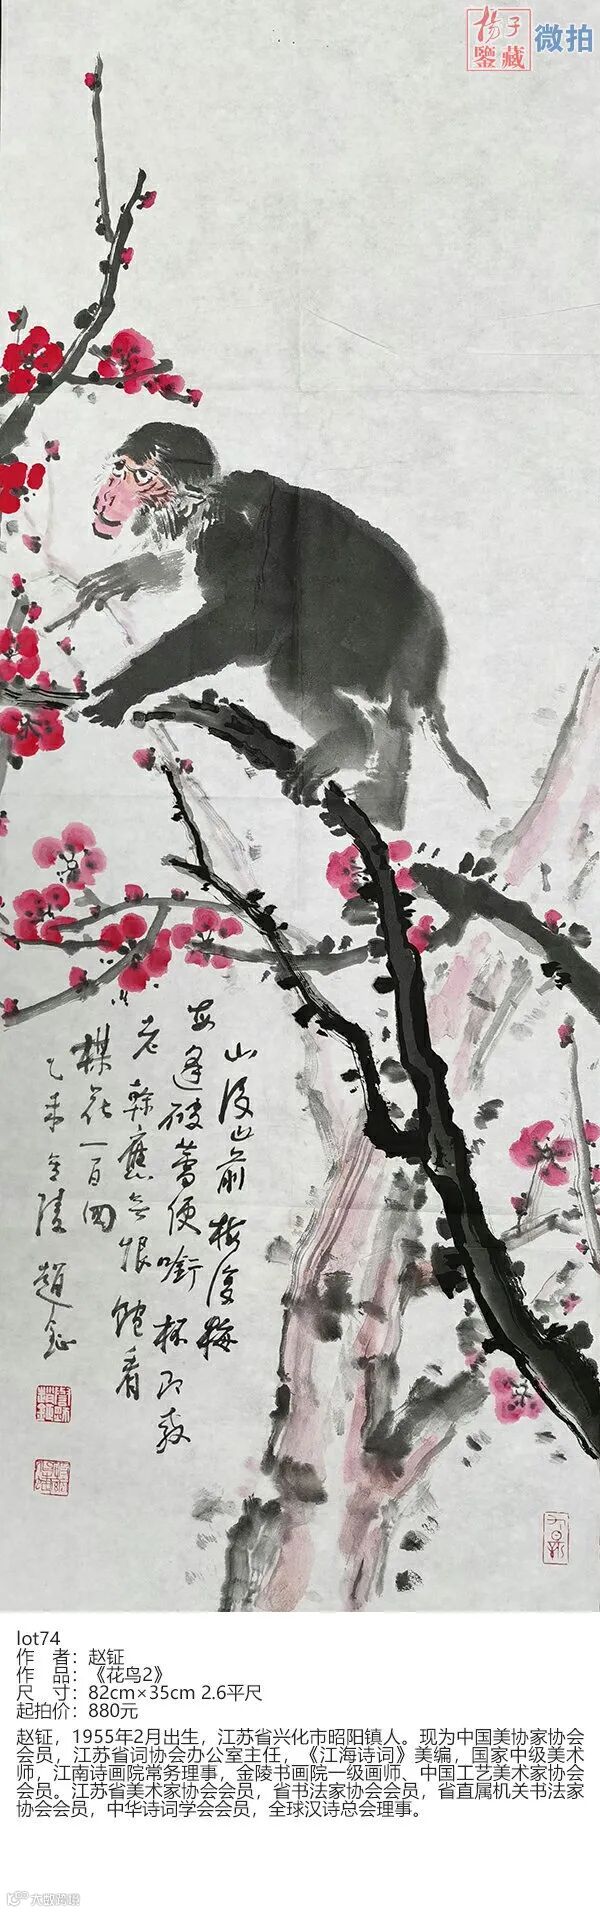 扬子
鉴藏
微拍
山後山前梅復梅
每逢破蕾便啣杯
老幹應無恨饒看
楳花一百回
乙未金陵趙鉦
lot74
作 者：赵钲
作 品：《花鸟2》
尺 寸：82cm×35cm 2.6平尺
起拍价：880元
赵钲，1955年2月出生，江苏省兴化市昭阳镇人。现为中国美协家协会
会员，江苏省词协会办公室主任，《江海诗词》美编，国家中级美术
师，江南诗画院常务理事，金陵书画院一级画师、中国工艺美术家协会
会员。江苏省美术家协会会员，省书法家协会会员，省直属机关书法家
协会会员，中华诗词学会会员，全球汉诗总会理事。
大数跨境